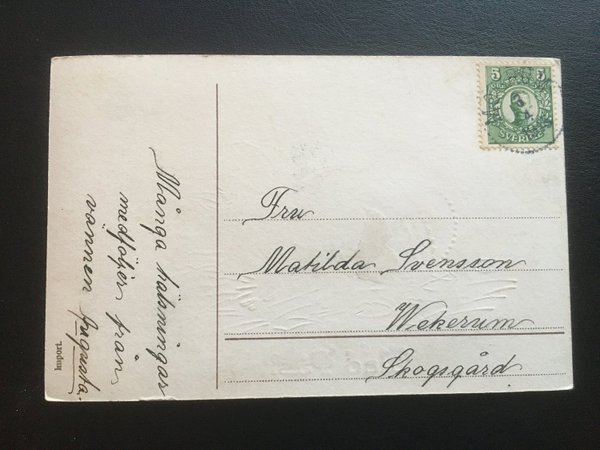 5 5
SVERIGE
Många hälsningar
medföljer från
vännen Augusta.
Fru
Matilda Svensson
Wekerum
Skogsgård
Import.